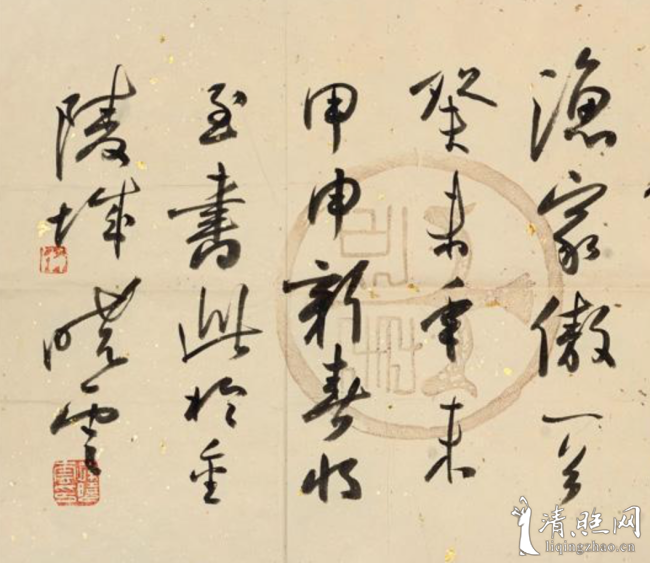 漁家傲一首
癸未年末
甲申新春将
至書此於金
陵城 曉雲
清照网
liqingzhao.cn